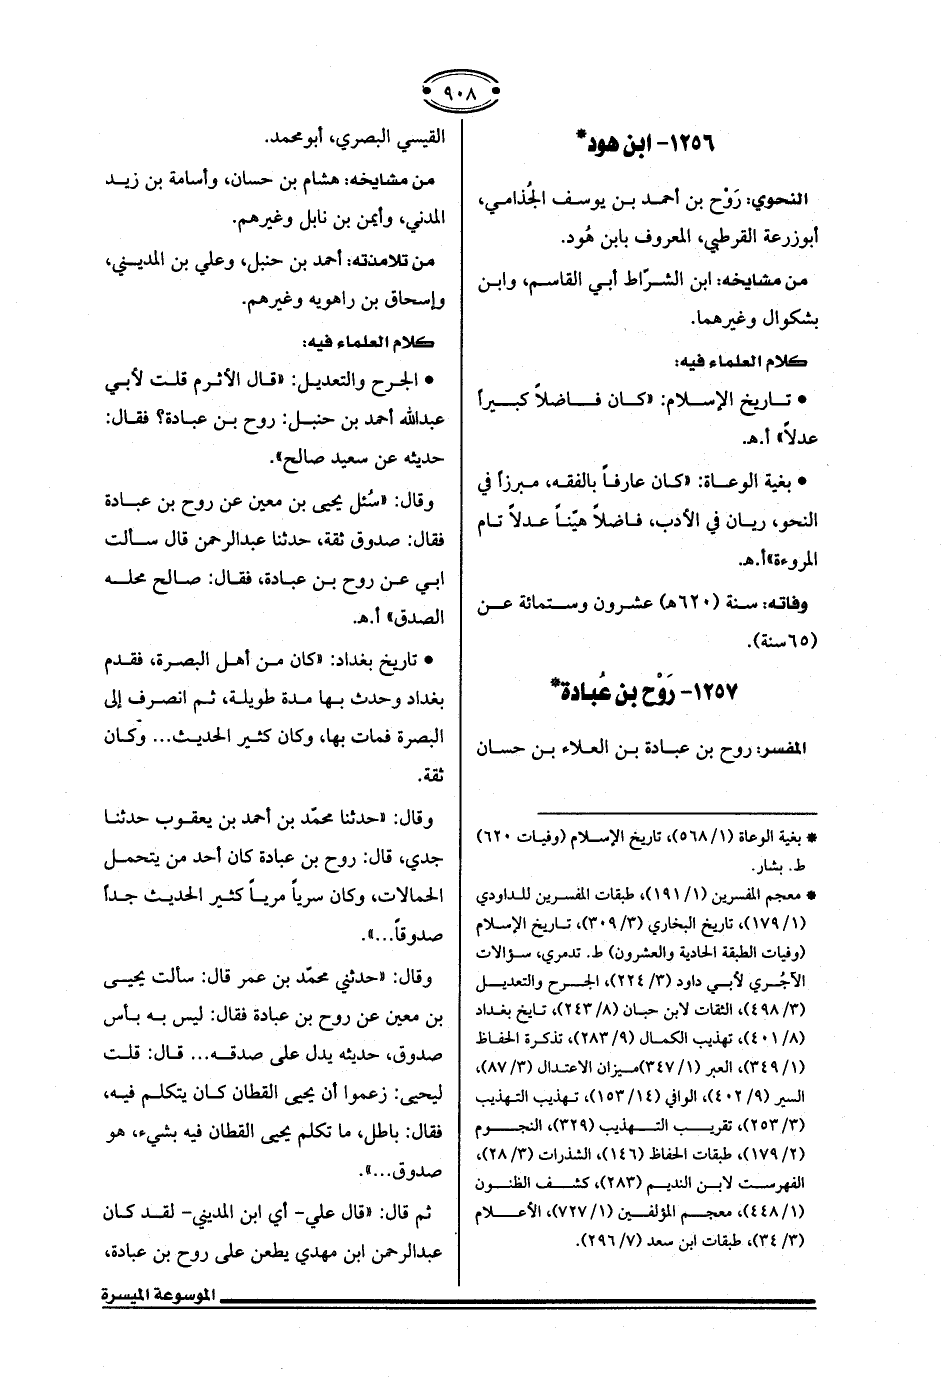 ٩٠٨
١٢٥٦- ابن هود*
النحوي: رَوْح بن أحمد بن يوسف الجُذامي،
أبوزرعة القرطبي، المعروف بابن هُود.
من مشايخه: ابن الشرّاط أبي القاسم، وابن
بشكوال وغيرهما.
كلام العلماء فيه:
• تاريخ الإسلام: «كان فاضلاً كبيراً
عدلاً» أ.هـ.
• بغية الوعاة: «كان عارفاً بالفقه، مبرزاً في
النحو، ريان في الأدب، فاضلاً هيّناً عدلاً تام
المروءة»أ.هـ.
وفاته: سنة (٦٢٠هـ) عشرون وستمائة عن
(٦٥سنة).
١٢٥٧- رَوْح بن عُبادة*
المفسر: روح بن عبادة بن العلاء بن حسان
* بغية الوعاة (١/ ٥٦٨)، تاريخ الإسلام (وفيات ٦٢٠)
ط. بشار.
* معجم المفسرين (١/ ١٩١)، طبقات المفسرين للداودي
(١/ ١٧٩)، تاريخ البخاري (٣/ ٣٠٩)، تاريخ الإسلام
(وفيات الطبقة الحادية والعشرون) ط. تدمري، سؤالات
الآجُري لأبي داود (٣/ ٢٢٤)، الجرح والتعديل
(٣/ ٤٩٨)، الثقات لابن حبان (٨/ ٢٤٣)، تايخ بغداد
(٨/ ٤٠١)، تهذيب الكمال (٩/ ٢٨٣)، تذكرة الحفاظ
(١/ ٣٤٩)، العبر (١/ ٣٤٧)ميزان الاعتدال (٣/ ٨٧)،
السير (٩/ ٤٠٢)، الوافي (١٤/ ١٥٣)، تهذيب التهذيب
(٣/ ٢٥٣)، تقريب التهذيب (٣٢٩)، النجوم
(٢/ ١٧٩)، طبقات الحفاظ (١٤٦)، الشذرات (٣/ ٢٨)،
الفهرست لابن النديم (٢٨٣)، كشف الظنون
(١/ ٤٤٨)، معجم المؤلفين (١/ ٧٢٧)، الأعلام
(٣/ ٣٤)، طبقات ابن سعد (٧/ ٢٩٦).
القيسي البصري، أبومحمد.
من مشايخه: هشام بن حسان، وأسامة بن زيد
المدني، وأيمن بن نابل وغيرهم.
من تلامذته: أحمد بن حنبل، وعلي بن المديني،
وإسحاق بن راهويه وغيرهم.
كلام العلماء فيه:
• الجرح والتعديل: «قال الأثرم قلت لأبي
عبدالله أحمد بن حنبل: روح بن عبادة؟ فقال:
حديثه عن سعيد صالح».
وقال: «سُئل يحيى بن معين عن روح بن عبادة
فقال: صدوق ثقة، حدثنا عبدالرحمن قال سألت
ابي عن روح بن عبادة، فقال: صالح محله
الصدق» أ.هـ.
• تاريخ بغداد: «كان من أهل البصرة، فقدم
بغداد وحدث بها مدة طويلة، ثم انصرف إلى
البصرة فمات بها، وكان كثير الحديث... وكان
ثقة.
وقال: «حدثنا محمّد بن أحمد بن يعقوب حدثنا
جدي، قال: روح بن عبادة كان أحد من يتحمل
الحمالات، وكان سرياً مرياً كثير الحديث جداً
صدوقاً...».
وقال: «حدثني محمّد بن عمر قال: سألت يحيى
بن معين عن روح بن عبادة فقال: ليس به بأس
صدوق، حديثه يدل على صدقه... قال: قلت
ليحيى: زعموا أن يحيى القطان كان يتكلم فيه،
فقال: باطل، ما تكلم يحيى القطان فيه بشيء، هو
صدوق...».
ثم قال: «قال علي- أي ابن المديني- لقد كان
عبدالرحمن ابن مهدي يطعن على روح بن عبادة،
الموسوعة الميسرة